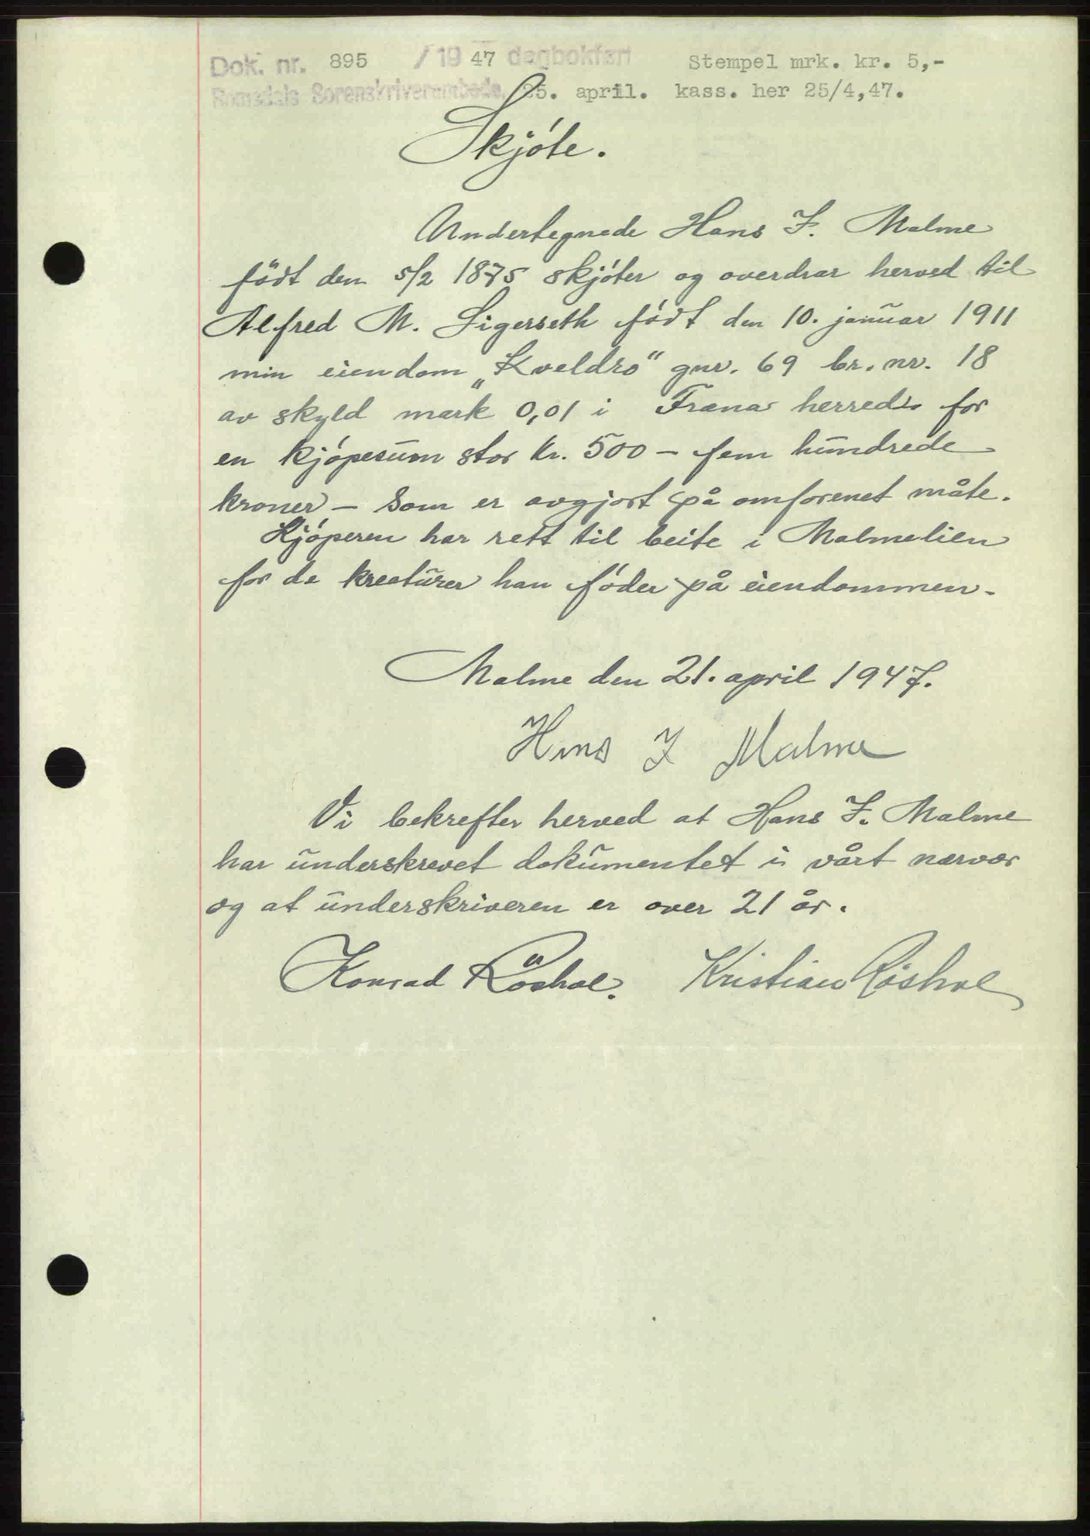 Dok. nr. 895 / 19 47 dagbokført Stempel mrk. kr. 5,-
Romsdals Sorenskriverembede, 25. april. kass. her 25/4,47.
Skjóte.
Undertegnede Hans F. Malme
födt den 5/2 1875 skjóter og overdrar herved til
Alfred M. Sigerseth födt den 10. januar 1911
min eiendom „Kveldro" gnr. 69 br. nr. 18
av skyld mark 0,01 i Fræna herred for
en kjópesum stor kr. 500 – fem hundrede
kroner – som er avgjort på omforenet måte.
Kjóperen har rett til beite i Malmelien
for de kreaturer han fóder på eiendommen.
Malme den 21. april 1947.
Hans F Malme
Vi bekrefter herved at Hans F. Malme
har underskrevet dokumentet i vårt nærvær
og at underskriveren er over 21 år.
Konrad Röshol. Kristian Røshol